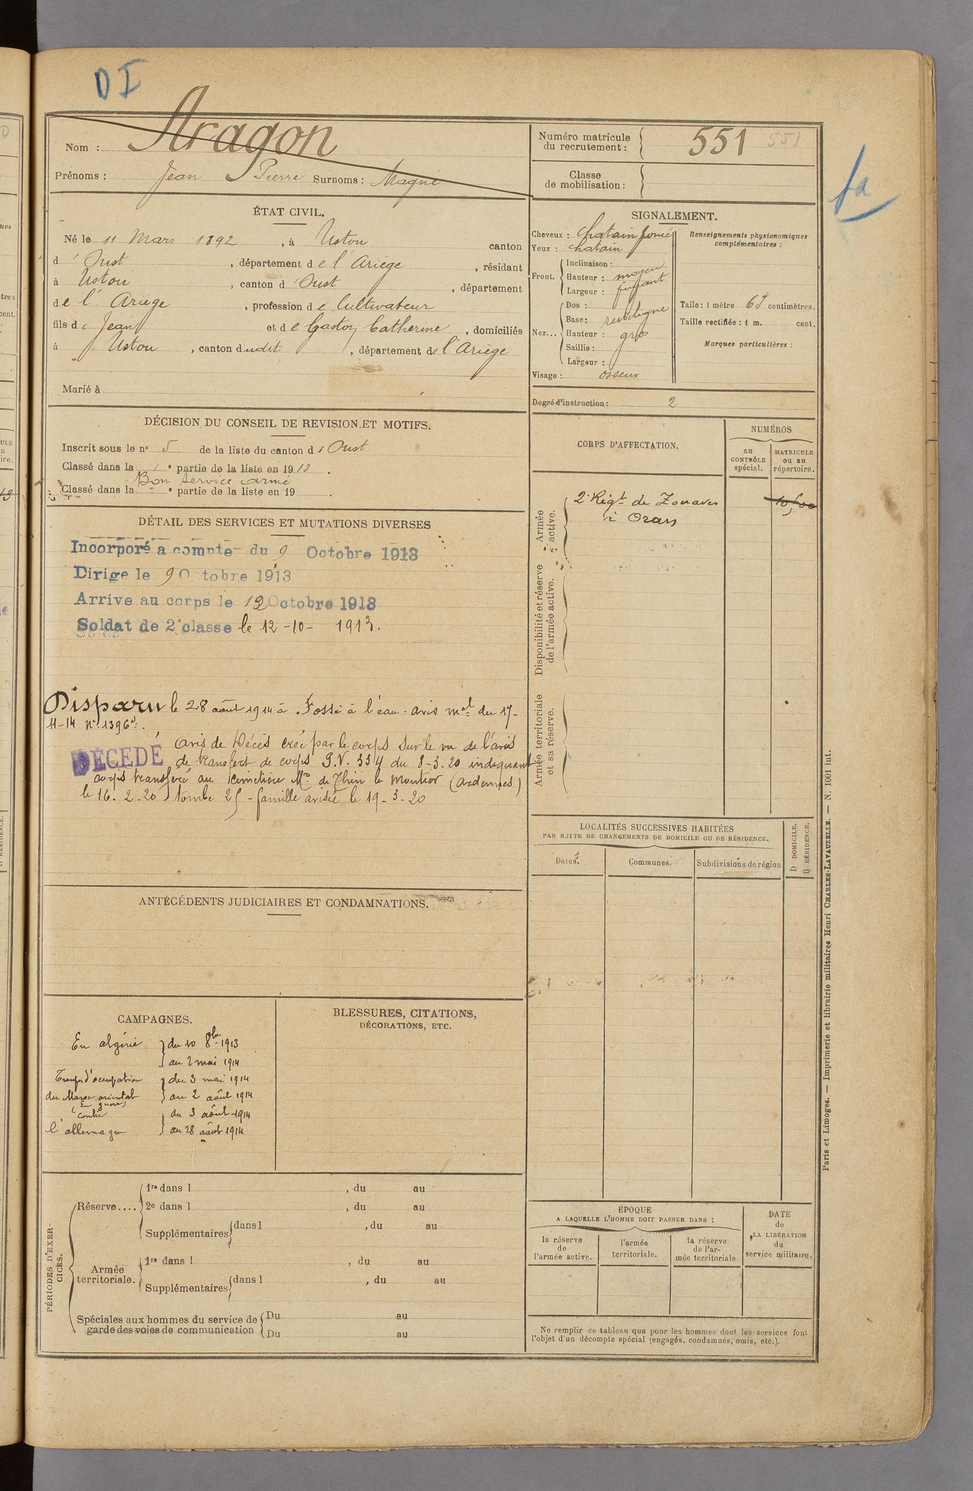 D I
Nom : Aragon
Prénoms : Jean Pierre Surnoms : Magne
Numéro matricule du recrutement : 551 551
Classe de mobilisation :
fa
ÉTAT CIVIL.
Né le 11 Mars 1892, à Ustou canton
d'Oust, département de l'Ariège, résidant
à Ustou, canton d'Oust, département
de l'Ariège, profession de Cultivateur
fils de Jean et de Gaston Catherine, domiciliés
à Ustou, canton dudit, département de l'Ariège
Marié à
SIGNALEMENT.
Cheveux : chatain foncé
Yeux : chatain
Front. Inclinaison :
Hauteur : moyen
Largeur : fuyant
Nez... Dos :
Base : rectiligne
Hauteur : gros
Saillie :
Largeur :
Visage : osseux
Renseignements physionomiques complémentaires :
Taille : 1 mètre 69 centimètres.
Taille rectifiée : 1 m. cent.
Marques particulières :
Degré d'instruction : 2
DÉCISION DU CONSEIL DE REVISION ET MOTIFS.
Inscrit sous le n° 5 de la liste du canton d'Oust
Classé dans la 1e partie de la liste en 1913
Bon service armé
Classé dans la e partie de la liste en 19
DÉTAIL DES SERVICES ET MUTATIONS DIVERSES
Incorporé a compter du 9 Octobre 1913
Dirigé le 9 Octobre 1913
Arrive au corps le 12 Octobre 1913
Soldat de 2e classe le 12-10-1913.
Disparu le 28 août 1914 à Fossé à l'eau. avis mel du 17-
11-14 n° 1396d.
DÉCÉDÉ avis de Décès créé par le corps sur le vu de l'avis
de transfert de corps P.V. 334 du 8-3-20 indiquant
corps transféré au cimetière Mre de Thin le Moutier (Ardennes)
le 16-2-20 tombe 25 - famille avisée le 19-3-20
CORPS D'AFFECTATION.
NUMÉROS
AU CONTRÔLE spécial.
MATRICULE ou au répertoire.
Armée active.
2e Régt de Zouaves
à Oran
Disponibilité et réserve de l'armée active.
Armée territoriale et sa réserve.
LOCALITÉS SUCCESSIVES HABITÉES
PAR SUITE DE CHANGEMENTS DE DOMICILE OU DE RÉSIDENCE.
Dates.
Communes.
Subdivisions de région
D. DOMICILE.
R. RÉSIDENCE.
ANTÉCÉDENTS JUDICIAIRES ET CONDAMNATIONS.
CAMPAGNES.
En algérie du 10 8bre 1913
au 2 mai 1914
Troup. d'occupation du 3 mai 1914
du Maroc oriental au 2 août 1914
(en guerre)
contre du 3 août 1914
l'allemagne au 28 août 1914
BLESSURES, CITATIONS,
DÉCORATIONS, ETC.
PÉRIODES D'EXERCICES.
Réserve.... 1re dans l , du au
2e dans l , du au
Supplémentaires dans l , du au
Armée territoriale. 1re dans l , du au
Supplémentaires dans l , du au
Spéciales aux hommes du service de Du au
garde des voies de communication Du au
ÉPOQUE
A LAQUELLE L'HOMME DOIT PASSER DANS :
la réserve de l'armée active.
l'armée territoriale.
la réserve de l'armée territoriale
DATE de LA LIBÉRATION du service militaire.
Ne remplir ce tableau que pour les hommes dont les services font
l'objet d'un décompte spécial (engagés, condamnés, omis, etc.).
Paris et Limoges. — Imprimerie et librairie militaires Henri CHARLES-LAVAUZELLE. — N. 1001 int.